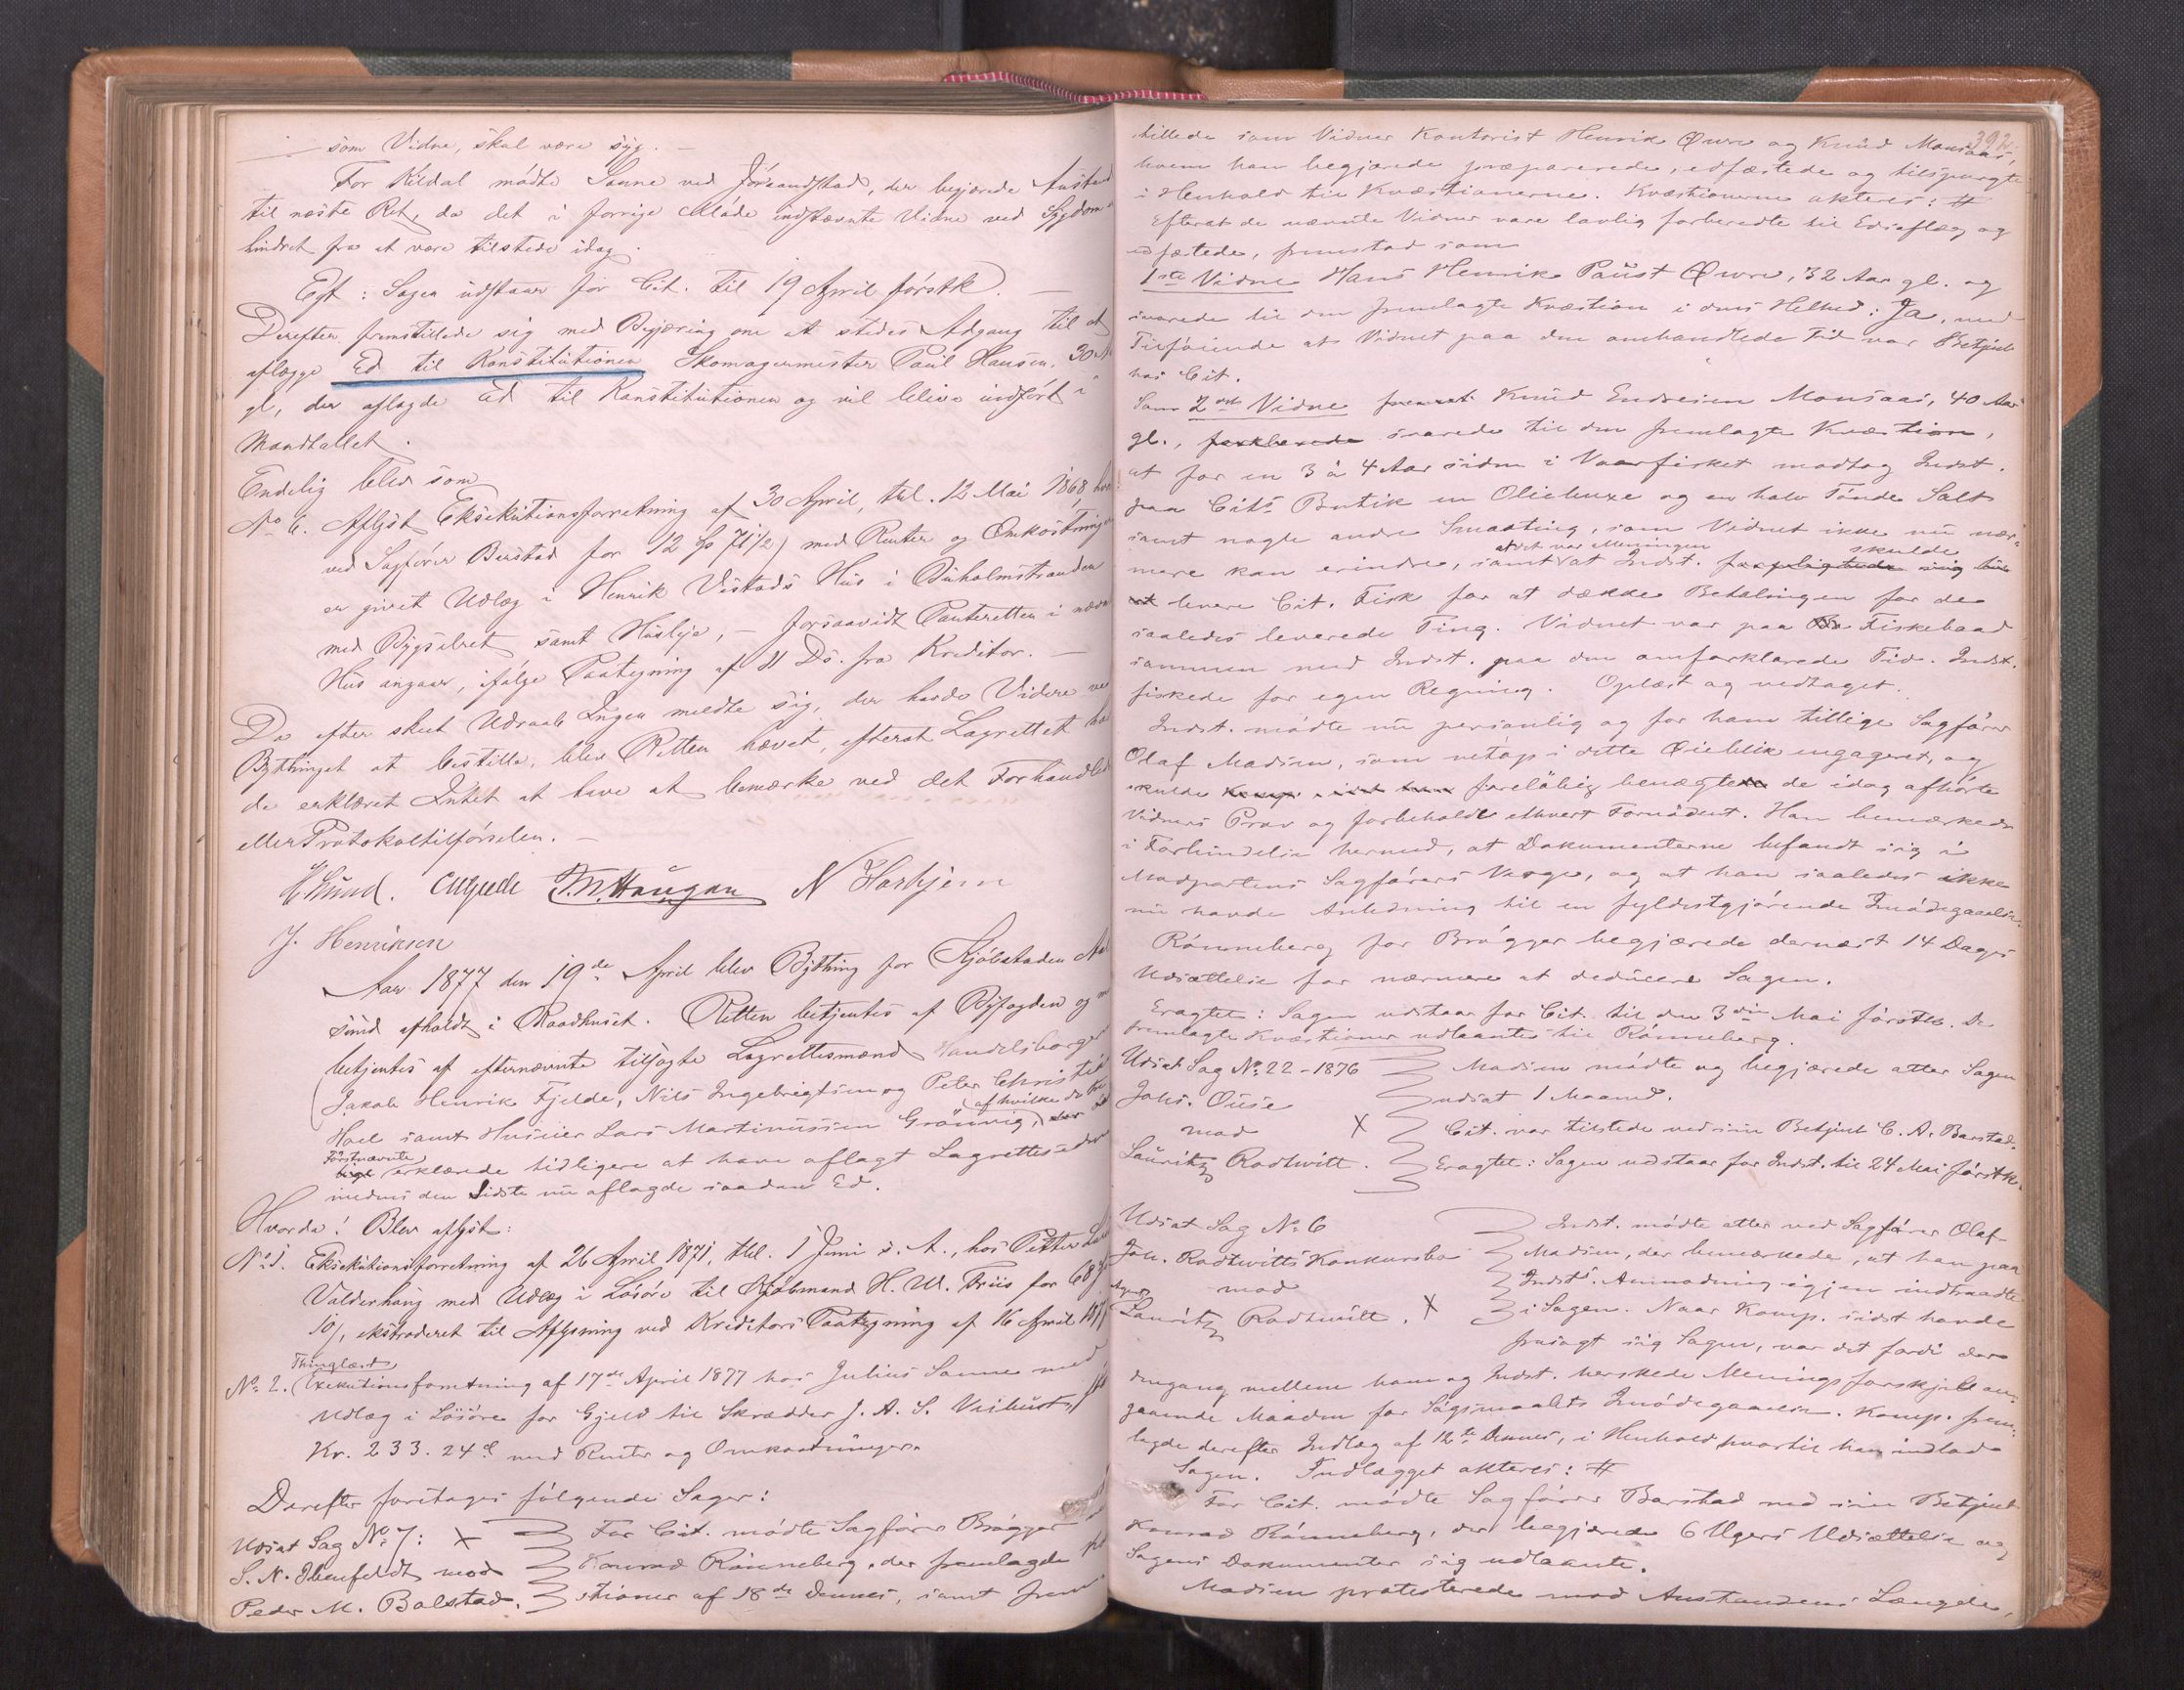 som Vidne, skal være syg. —
For Kildal mødte Sanne ved Jörsandstad, der begjærede Anstand
til næste Ret, da det i forrige Møde indstævnte Vidne ved Sygdom er
hindret fra at være tilstede idag.
Egt: Sagen udstaar for Cit. til 19 April förstk. —
Derefter fremstillede sig med Begjæring om at stedes Adgang til at
aflægge Ed til Konstitutionen Skomagermester Paul Hansen, 30 Aar
gl, der aflagde Ed til Konstitutionen og vil blive indført i
Mandtallet.
Endelig blev som
No 6. Aflyst Eksekutionsforretning af 30 April, thl. 12 Mai 1868, hvor
ved Sagfører Barstad for 12 Sp 71½ med Renter og Omkostninger
er givet Udlæg i Henrik Vestads Hus i Buholmstranden
med Bygselret samt Husleje, — forsaavidt Panteretten i nævnte
Hus angaar, ifølge Paategning af 11 Ds. fra Kreditor. —
Da efter skeet Udraab Ingen meldte sig, der havde Videre ved
Bythinget at bestille, blev Retten hævet, efterat Lagrettet hav-
de erklæret Intet at have at bemærke ved det Forhandlede
eller Protokoltilførselen. —
H. Lund. T. M. Haugan N Harhjem
J. Henriksen
Aar 1877 den 19de April blev Bything for Kjøbstaden Aale
sund afholdt i Raadhuset. Retten betjentes af Byfogden og
betjentes af efternævnte tilsagte Lagrettesmænd Handelsborger
Jakob Henrik Fjelde, Nils Ingebrigtsen og Peter Christian
Hoel samt Huseier Lars Martinussen Grönvig, af hvilke de tre
Førstnævnte erklærede tidligere at have aflagt Lagrettesed
medens den Sidste nu aflagde saadan Ed.
Hvorda! Blev aflyst:
No 1. Eksekutionsforretning af 26 April 1871, thl. 1 Juni s. A., hos Petter
Valderhaug med Udlæg i Løsøre til Kjøbmand H. U. Friis for 68
10/, ekstraderet til Aflysning ved Kreditors Paategning af 16 April 1877
Thinglæst
No 2. Exekutionsforretning af 17de April 1877 hos Julius Sanne med
Udlæg i Løsøre for Gjeld til Skrædder J. A. S. Veibust
Kr. 233. 24 ø med Renter og Omkostninger.
Derefter foretoges følgende Sager:
Udsat Sag No 7: X For Cit. mødte Sagfører Brøgger
S. N. Ibenfeldt mod Konrad Rønneberg, der fremlagde
Peder M. Bolstad. stioner af 18de Dennes, samt frem-
392
stillede som Vidner Kontorist Henrik Øwre og Knud Monsaas,
hvem han begjærede præparerede, edfæstede og tilspurgte
i Henhold til Kvæstionerne. Kvæstionerne akteres: #
Efterat de nævnte Vidner vare lovlig forberedte til Edsaflæg og
edfæstede, fremstod som
1ste Vidne Hans Henrik Paust Øwre, 32 Aar gl. og
svarede til den fremlagte Kvæstion i dens Helhed: Ja, med
Tilføiende at Vidnet paa den omhandlede Tid var Betjent
hos Cit.
Som 2det Vidne fremstod Knud Endresen Monsaas, 40 Aar
gl., forklarede svarede til den fremlagte Kvæstion,
at for en 3 à 4 Aar siden i Vaarfisket modtog Indst.
paa Cits Butik en Oliebuxe og en halv Tønde Salt
samt nogle andre Smaating, som Vidnet ikke nu nær-
mere kan erindre, samt at det var Meningen at Indst. forpligtede sig til skulde
at levere Cit. Fisk for at dække Betalingen for de
saaledes leverede Ting. Vidnet var paa Fiskebaad
sammen med Indst. paa den omforklarede Tid. Indst.
fiskede for egen Regning. Oplæst og vedtaget.
Indst. mødte nu personlig og for ham tillige Sagfører
Olaf Madsen, som netop i dette Øieblik engageret, og
skulde foreløbig benægte de idag afhørte
Vidners Prov og forbeholdt ethvert Fornødent. Han bemærkede
i Forbindelse hermed, at Dokumenterne befandt sig i
Modpartens Sagførers Værge, og at han saaledes ikke
nu havde Anledning til en fyldestgjørende Imødegaaelse.
Rønneberg for Brøgger begjærede dernæst 14 Dages
Udsættelse for nærmere at deducere Sagen.
Eragtet: Sagen udstaar for Cit. til den 3die Mai førstk. De
fremlagte Kvæstioner udlaantes til Rønneberg.
Udsat Sag No 22-1876 Madsen mødte og begjærede atter Sagen
Johs. Ouse udsat 1 Maaned.
mod X Cit. var tilstede ved sin Betjent C. A. Barstad.
Lauritz Rodtwitt. Eragtet: Sagen udstaar for Indst. til 24 Mai førstk.
Udsat Sag No 6 Indst. mødte atter ved Sagfører Olaf
Joh. Rodtwitts Konkursbo Madsen, der bemærkede, at han paa
mod Indsts. Anmodning igjen indtraadte
Lauritz Rodtwitt. X i Sagen. Naar Komp. sidst havde
frasagt sig Sagen, var det fordi der
dengang mellem ham og Indst. herskede Meningsforskjel an-
gaaende Maaden for Søgsmaalets Imødegaaelse. Komp. frem-
lagde derefter Indlæg af 12te Dennes, i Henhold hvortil han indlod
Sagen. Indlægget akteres: #
For Cit. mødte Sagfører Barstad ved sin Betjent
Konrad Rønneberg, der begjærede 6 Ugers Udsættelse og
Sagens Dokumenter sig udlaante.
Madsen protesterede mod Anstandens Længde,